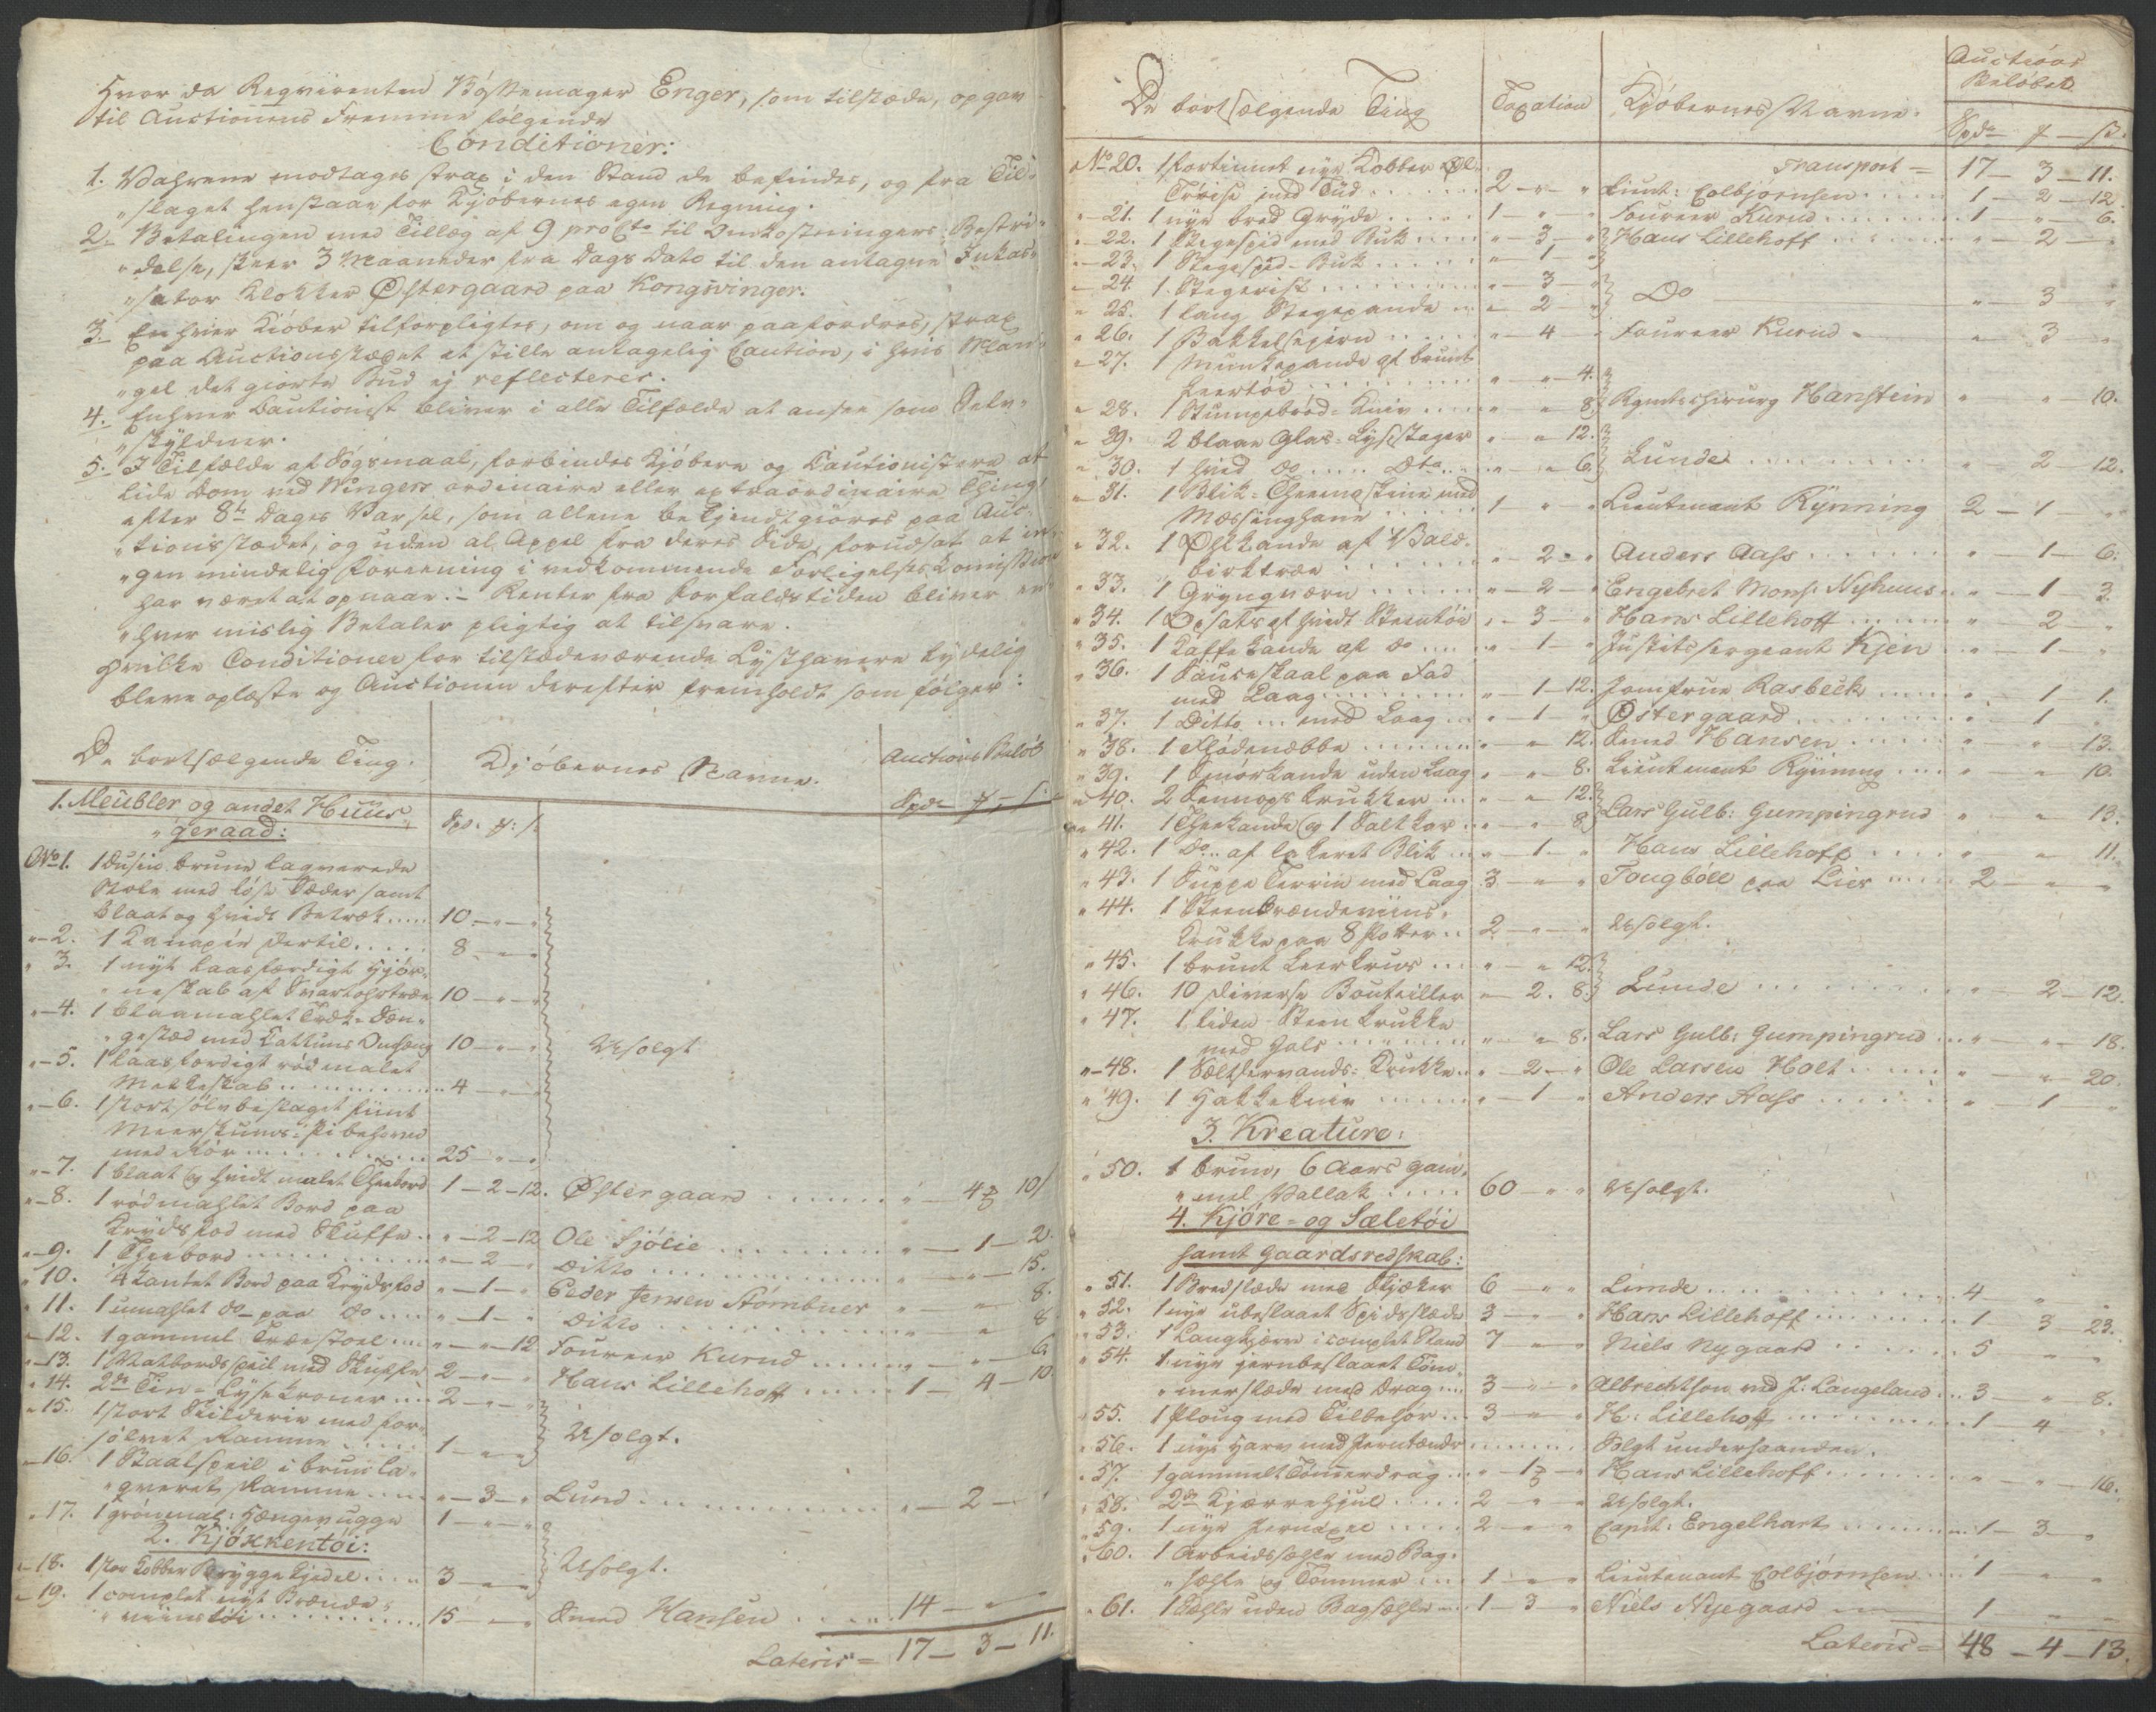 Hvor da Reqvirenten Bøssemager Enger, som tilstæde, opgav
til Auctionens Fremme følgende
Conditioner:
1. Vahrene modtages strax i den Stand de befindes, og fra Til-
"slaget henstaae for Kjøbernes egen Regning.
2. Betalingen med Tillæg af 9 proCto til Omkostningers Bestri-
"delse, skeer 3 Maaneder fra Dags Dato til den antagne Inkas-
"sator Klokker Østergaard paa Kongsvinger.
3. Enhver Kiøber tilforpligtes, om og naar paafordres, strax
paa Auctionsstædet at stille antagelig Caution, i hvis Man-
"gel det giorte Bud ej reflecteres.
4. Enhver Cautionist bliver i alle Tilfælde at ansee som Selv-
"skyldner.
5. I Tilfælde af Søgsmaal, forbindes Kjøbere og Cautionistere at
lide Dom ved Wingers ordinaire eller extraordinaire Thing,
efter 8te Dages Varsel, som allene bekjendtgiøres paa Auc-
"tionsstædet, og uden al Appel fra deres Side, forudsat at in-
"gen mindelig Foreening i vedkommende Forligelses Commission
har været at opnaae. - Renter fra Forfaldstiden bliver en-
"hver mislig Betaler pligtig at tilsvare.
Hvilke Conditioner for tilstædeværende Lysthavere tydelig
bleve oplæste og Auctionen derefter fremholdt som følger:
De bortsælgende Ting. Kjøbernes Navne. Auctions Beløb
Spd. # ß.
1. Meubler og andet Huus-
"geraad: Spd. #: ß.
No 1. 1 Dusin brune laqverede
Stole med løse Sæder samt
blaat og hvidt Betræk..... 10 - " - "
" - 2. 1 Kanapée dertil..... 8 - " - "
" 3. 1 nyt laasfærdigt Hjør-
"neskab af Svartohrtræe 10 - " - "
" - 4. 1 blaamahlet Træk-Sæn-
"gestæd med Kattuns Omhæng 10 - " - " Usolgt
" - 5. 1 laasfærdigt rødmalet
Melkeskab ............ 4 - " - "
" - 6. 1 stort sølvbeslaget fiint
Meerskums Pibehoved
med Rør ............ 25 - " - "
" - 7. 1 blaat og hvidt malet Theebord 1 - 2 - 12. Østergaard ...... " - 4 # 10 ß
" - 8. 1 rødmahlet Bord paa
Krydsfod med Skuffe .. " - 2 - 12 Ole Sjølie ...... " - 1 - 2.
" - 9. 1 Theebord ........ " - 2 - " Ditto ........ " - " - 15.
" 10. 1 4kantet Bord paa Krydsfod " - 1 - " Peder Jensen Stømbner " " 8.
" 11. 1 umahlet do - paa do .... " - 1 - " Ditto ........ " - " 8
" - 12. 1 gammel Træstoel .... " - " - 12 Foureer Kurud ...... " - " - 6.
" - 13. 1 Natbordsspeil med Skuffe 2 - " - " Hans Lillehoff ..... 1 - 4 - 10.
" 14. 2de Tin-Lysekroner ... 2 - " - "
" 15. 1 stort Skilderie med for-
sølvet Ramme ...... 1 - " - " Usolgt.
" - 16. 1 Staalspeil i bruun la-
"qveret Ramme .... " - 3 - " Lund ........ " - 2 - "
" - 17. 1 grønmal: Hængevugge 1 - " - "
2. Kjøkkentøi:
" - 18. 1 stor Kobber Bryggekjedel .... 3 - " - " Usolgt.
" - 19. 1 complet nyt Brænde-
"viinstøi ............ 15 - " - " Smed Hansen ..... 14 - " - "
Lateris = 17 - 3 - 11.
De bortsælgende Ting Taxation Kjøbernes Navne. Auctions
Beløbet
Spd. # - ß.
Transport = 17 - 3 - 11.
No 20. 1 fortinnet nye Kobber Øl-
Trøise med Tud ...... 2 - " - " Lieut: Colbjørnsen .... 1 - 2 - 12.
" - 21. 1 nye bred Gryde ..... 1 - " - " Foureer Kurud ...... 1 - " - 6.
" - 22. 1 Stegespid med Buk .... " - 3 - " Hans Lillehoff ...... " - 2 - "
" - 23. 1 Stegespid-Buk ...... " - 1 - "
" - 24. 1 Stegerist ........ " - 3 - " Do " - 3 - "
" 25. 1 lang Stegepande ... " - 2 - "
" 26. 1 Bakkelsejern ..... " - 4 - " Foureer Kurud - " - 3 - "
" - 27. 1 Munkepande af bruunt
Leertøi ........ " - " - 4.
" 28. 1 Sumpebrød-Kniv ..... " - " 8. Rgmtschirurg Hanstein " - " - 10.
" 29. 2 blaae Glas-Lysestager " - " 12.
" 30. 1 hvid do ..... Dto. .... " - " 6. Lunde ........ " 2 - 12.
" 31. 1 Blik-Theemaskine med
Messinghane ...... 1 - " - " Lieutenant Rynning 2 - 1 - "
" 32. 1 Ølkande af Vald-
birktræe ........ " - 2 - " Anders Aass ........ " - 1 - 6.
" 33. 1 Grynqværn ...... " - 2 - " Engebret Mons: Nyhuus .. " - 1 - 3.
" 34. 1 Opsats af hvidt Steentøi " - 3 - " Hans Lillehoff ...... " 2 - "
" 35. 1 Kaffekande af do .... " - 1 - " Justitssergeant Kjen .. " - 1 - "
" 36. 1 Sauceskaal paa Fad
med Laag ........ " - 1 - 12. Jomfrue Rasbeck ..... " - 1 1.
" 37. 1 Ditto ... med Laag ... " - 1 - " Østergaard ........ " - 1 - "
" 38. 1 Flødenæbbe ...... " - " 12. Smed Hansen ...... " " - 13.
" 39. 1 Smørkande uden Laag " - " 8. Lieutenant Rynning .... " " 10.
" 40. 2 Sennopskrukker ... " - " 12.
" 41. 1 Theekande og 1 Saltkar .. " - " 8. Lars Gulb: Gumpingrud " - " 13.
" 42. 1 Do .. af lakeret Blik ... " - 1 - " Hans Lillehoff .... " - " 11.
" 43. 1 Suppe Terrin med Laag 3 - " - " Tougbøll paa Lier ..... 2 - " - "
" 44. 1 Steenbrændeviins-
Krukke paa 8 Potter .. 2 - " - " Usolgt.
" 45. 1 brunt Leerkruus ... " - " 12.
" 46. 10 diverse Bouteiller " - 2. 8. Lunde ........ " 2 - 12.
" 47. 1 liden Steenkrukke
med Hals ........ " - " 8. Lars Gulb: Gumpingrud ... " - " - 18.
" - 48. 1 Seltservands-Krukke .. " - 2 - " Ole Larsen Holt ..... " - " 20.
" 49. 1 Hakkekniv ...... " - 1 - " Anders Aass ...... " 1 - "
3. Kreature:
" 50. 1 brun, 6 Aars gam-
"mel Vallak ..... 60 - " - " Usolgt.
4. Kjøre- og Sæletøi
samt Gaardsredskab:
" 51. 1 Bredslæde med Skjæker 6 - " " Lunde ........ 4 - " "
" 52. 1 nye ubeslaaet Spidsslæde 3 - " " Hans Lillehoff ........ 1 - 3 - 23.
" 53. 1 Langkjærre i complet Stand 7 - " " Niels Nygaard ...... 5 - " "
" 54. 1 nye jernbeslaaet Tøm-
"merslæde med Drag .... 3 - " " Albrechtson ved J: Langeland ... 3 - " 8.
" 55. 1 Ploug med Tilbehør ... 3 - " " H: Lillehoff ........ 1 - 4 - "
" 56. 1 nye Harv med Jerntænder ........ Solgt underhaanden.
" 57. 1 gammelt Tømmerdrag ... " - 1 # - " Hans Lillehoff ........ " - " 16.
" 58. 2de Kjærrehjul ..... 2 - " " Usolgt.
" 59. 1 nye Jernaxel ..... 2 - " " Capit: Engelhart ........ 1 - 3 - "
" 60. 1 Arbeidssæhle med Bag-
"sæhle og Tømmer ... 1 - " - " Lieutenant Colbjørnsen .... 1 - " "
" 61. 1 Sæhle uden Bagsæhle .... 1 - 3 - " Niels Nyegaard .... 1 - " - "
Lateris = 48 - 4 - 13.